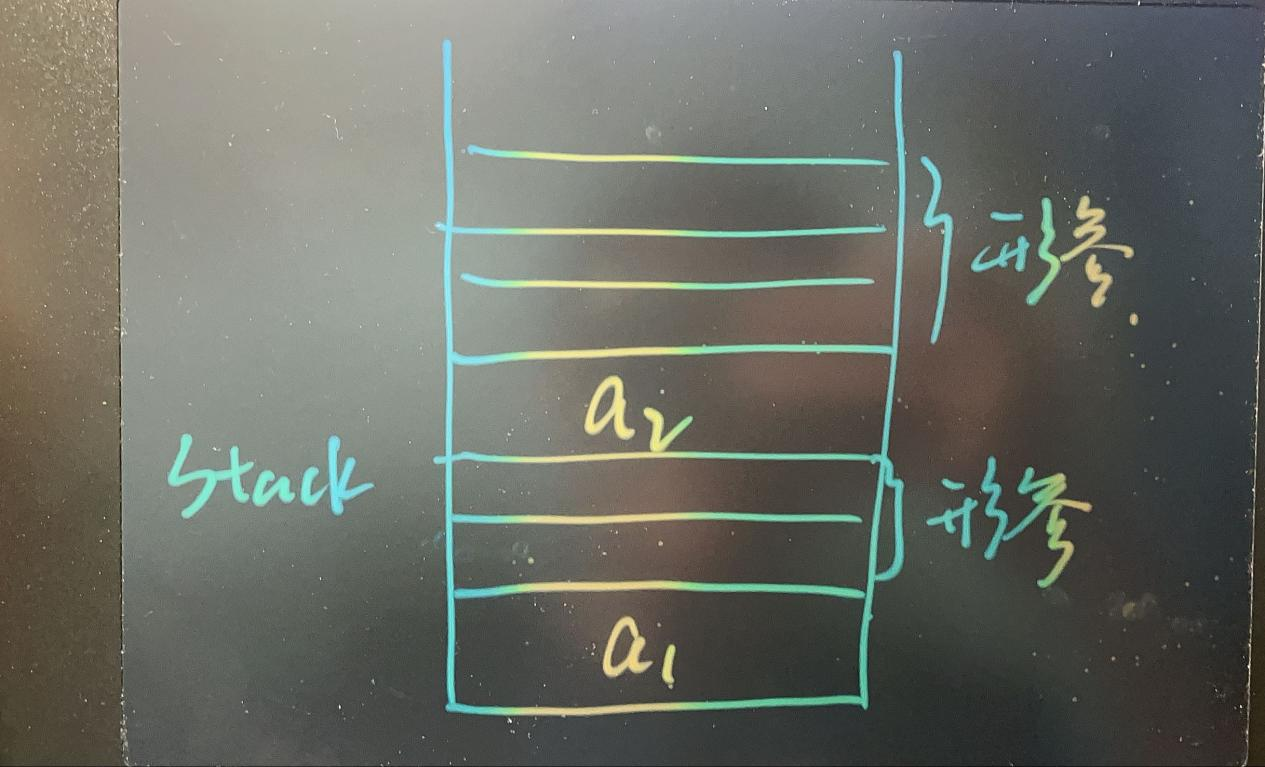 形参
a2
Stack
形参
a1